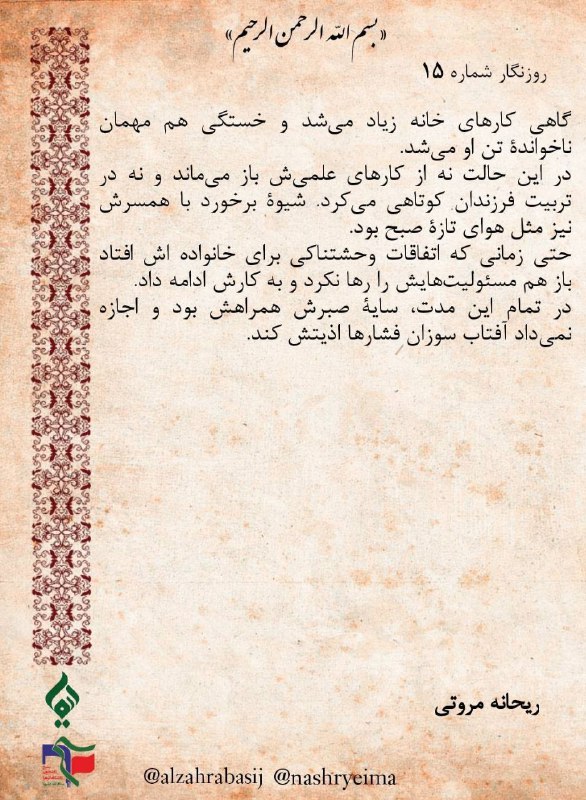 «بسم الله الرحمن الرحیم»
روزنگار شماره ۱۵
گاهی کارهای خانه زیاد می‌شد و خستگی هم مهمان
ناخواندهٔ تن او می‌شد.
در این حالت نه از کارهای علمی‌ش باز می‌ماند و نه در
تربیت فرزندان کوتاهی می‌کرد. شیوهٔ برخورد با همسرش
نیز مثل هوای تازهٔ صبح بود.
حتی زمانی که اتفاقات وحشتناکی برای خانواده اش افتاد
باز هم مسئولیت‌هایش را رها نکرد و به کارش ادامه داد.
در تمام این مدت، سایهٔ صبرش همراهش بود و اجازه
نمی‌داد آفتاب سوزان فشارها اذیتش کند.
ریحانه مروتی
@alzahrabasij @nashryeima